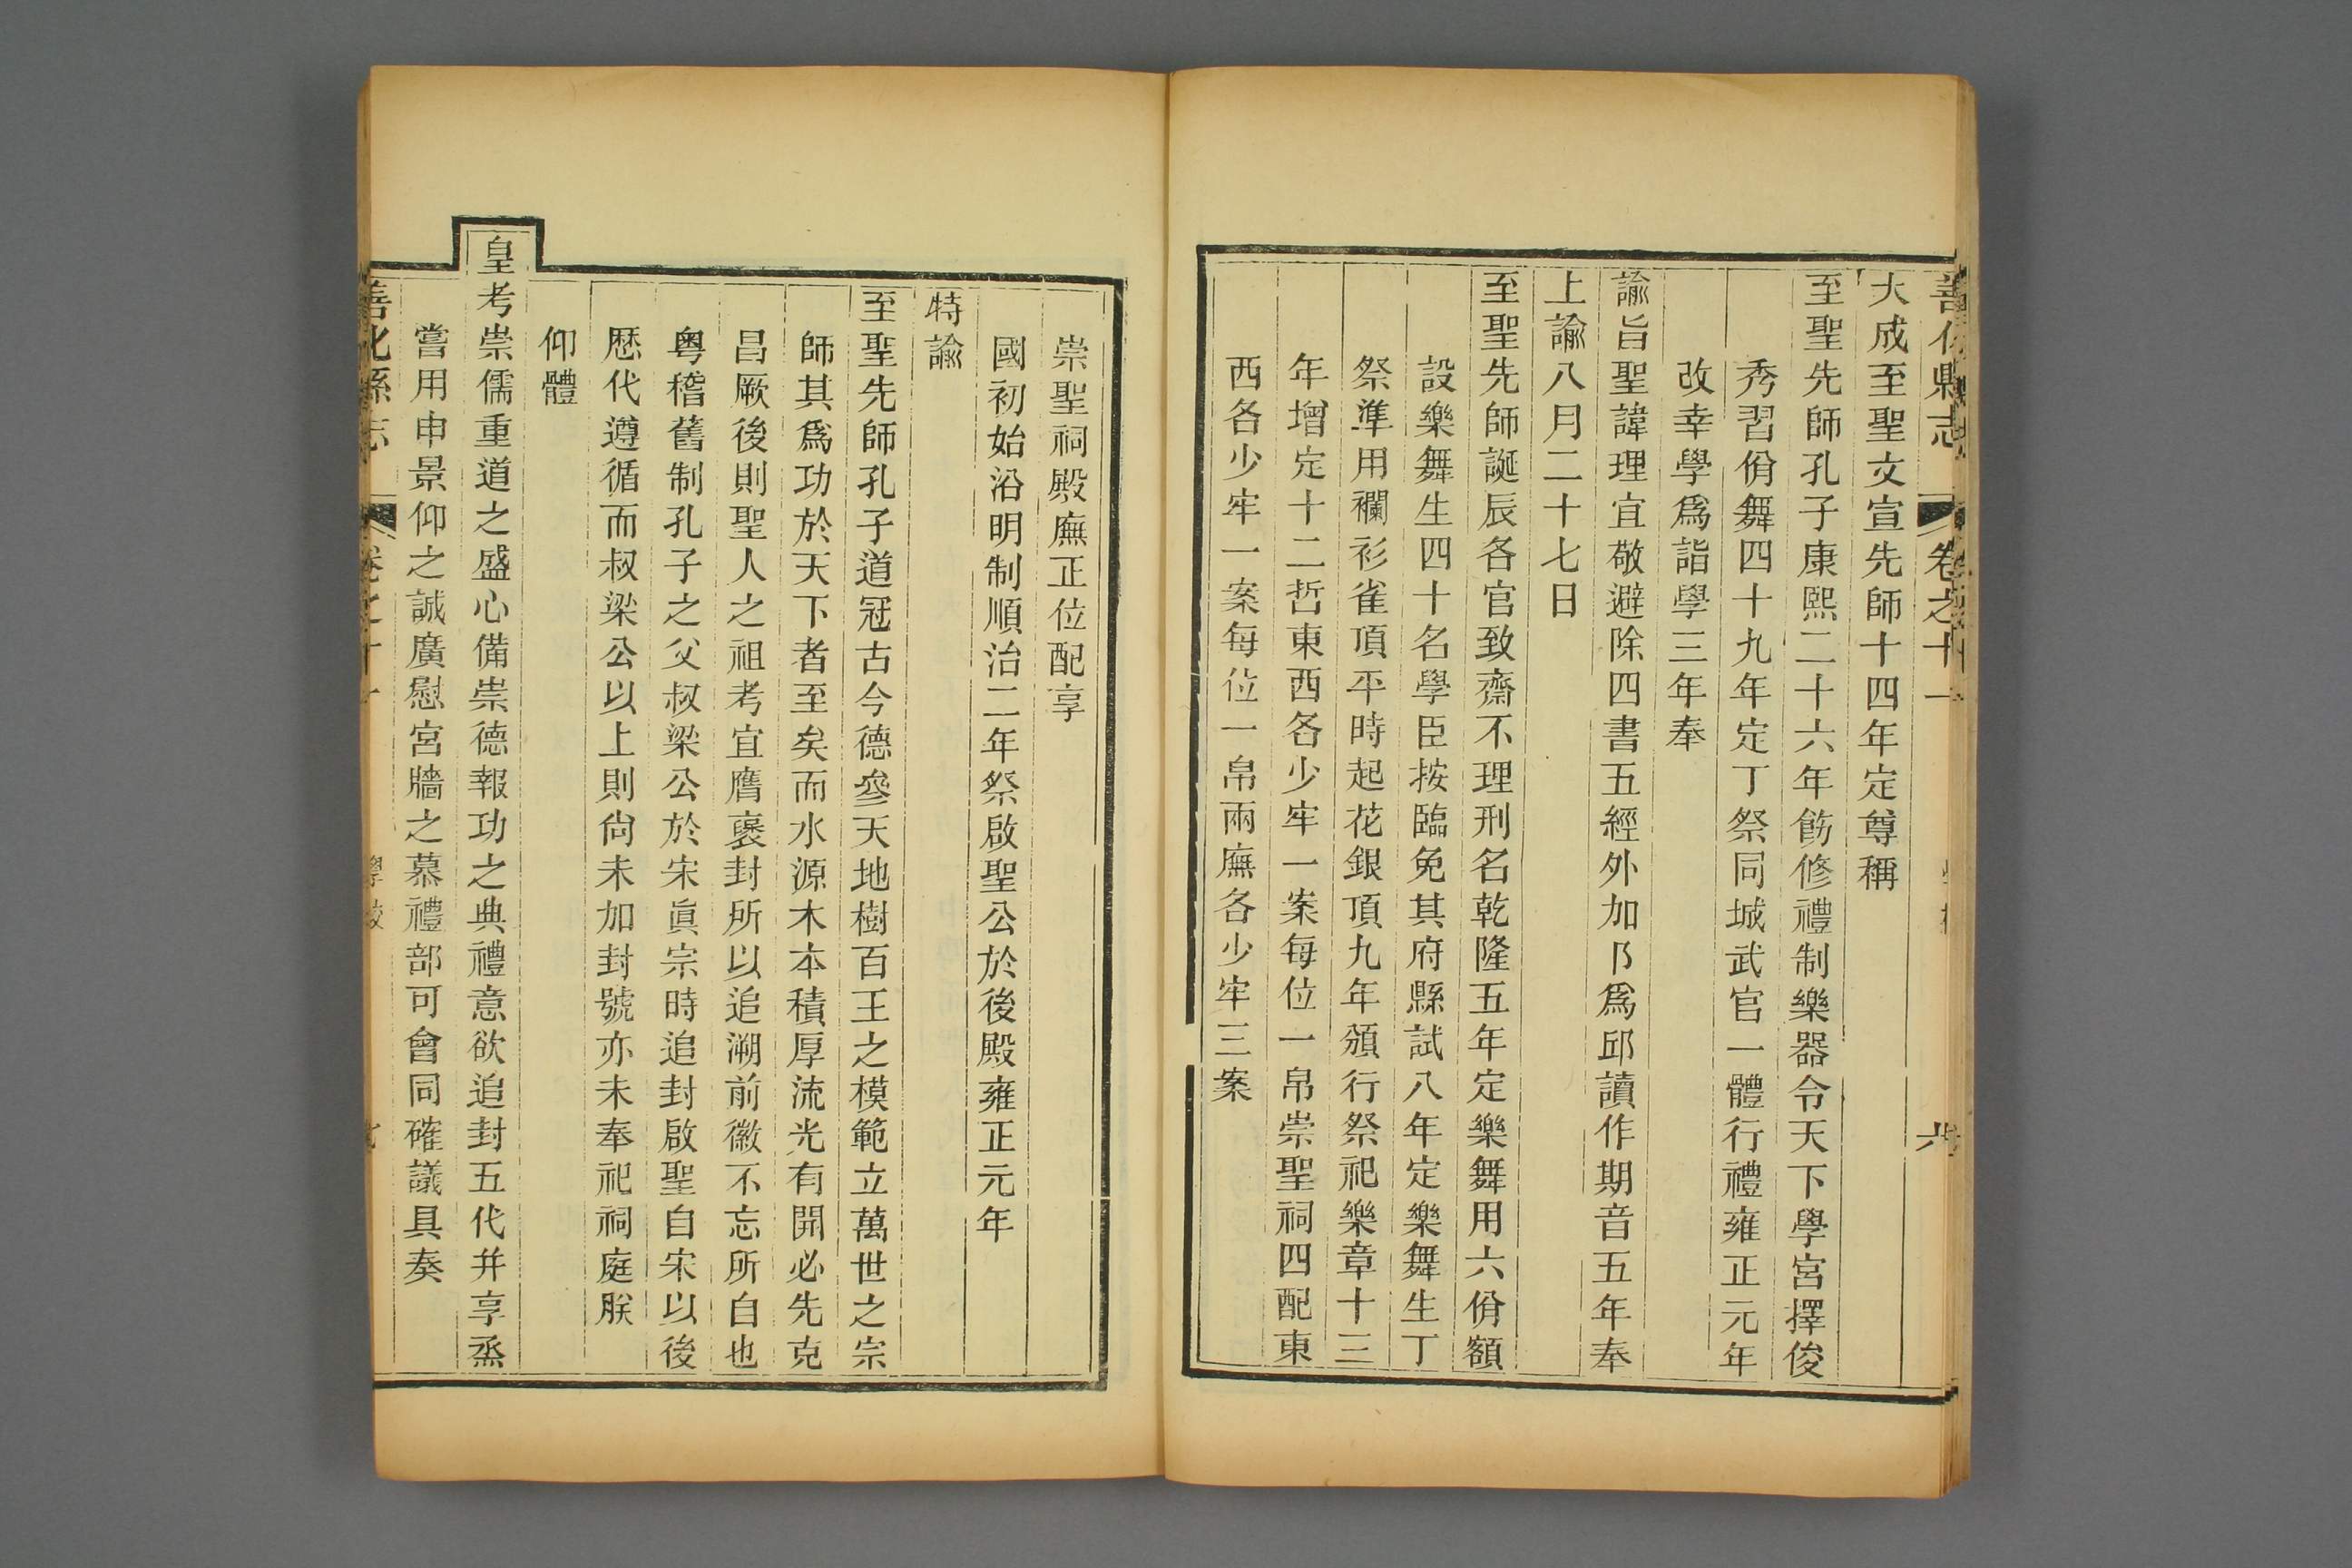 善化縣志 卷之十一
大成至聖文宣先師十四年定尊稱
至聖先師孔子康熙二十六年飭修禮制樂器令天下學宮擇俊
秀習佾舞四十九年定丁祭同城武官一體行禮雍正元年
改幸學爲詣學三年奉
諭旨聖諱理宜敬避除四書五經外加阝爲邱讀作期音五年奉
上諭八月二十七日
至聖先師誕辰各官致齋不理刑名乾隆五年定樂舞用六佾額
設樂舞生四十名學臣按臨免其府縣試八年定樂舞生丁
祭準用襴衫雀頂平時起花銀頂九年頒行祭祀樂章十三
年增定十二哲東西各少牢一案每位一帛崇聖祠四配東
西各少牢一案每位一帛兩廡各少牢三案
崇聖祠殿廡正位配享
國初始沿明制順治二年祭啟聖公於後殿雍正元年
特諭
至聖先師孔子道冠古今德參天地樹百王之模範立萬世之宗
師其爲功於天下者至矣而水源木本積厚流光有開必先克
昌厥後則聖人之祖考宜膺褒封所以追溯前徽不忘所自也
粵稽舊制孔子之父叔梁公於宋眞宗時追封啟聖自宋以後
歷代遵循而叔梁公以上則尙未加封號亦未奉祀祠庭朕
仰體
皇考崇儒重道之盛心備崇德報功之典禮意欲追封五代并享烝
嘗用申景仰之誠廣慰宮牆之慕禮部可會同確議具奏
善化縣志 卷之十一 學校